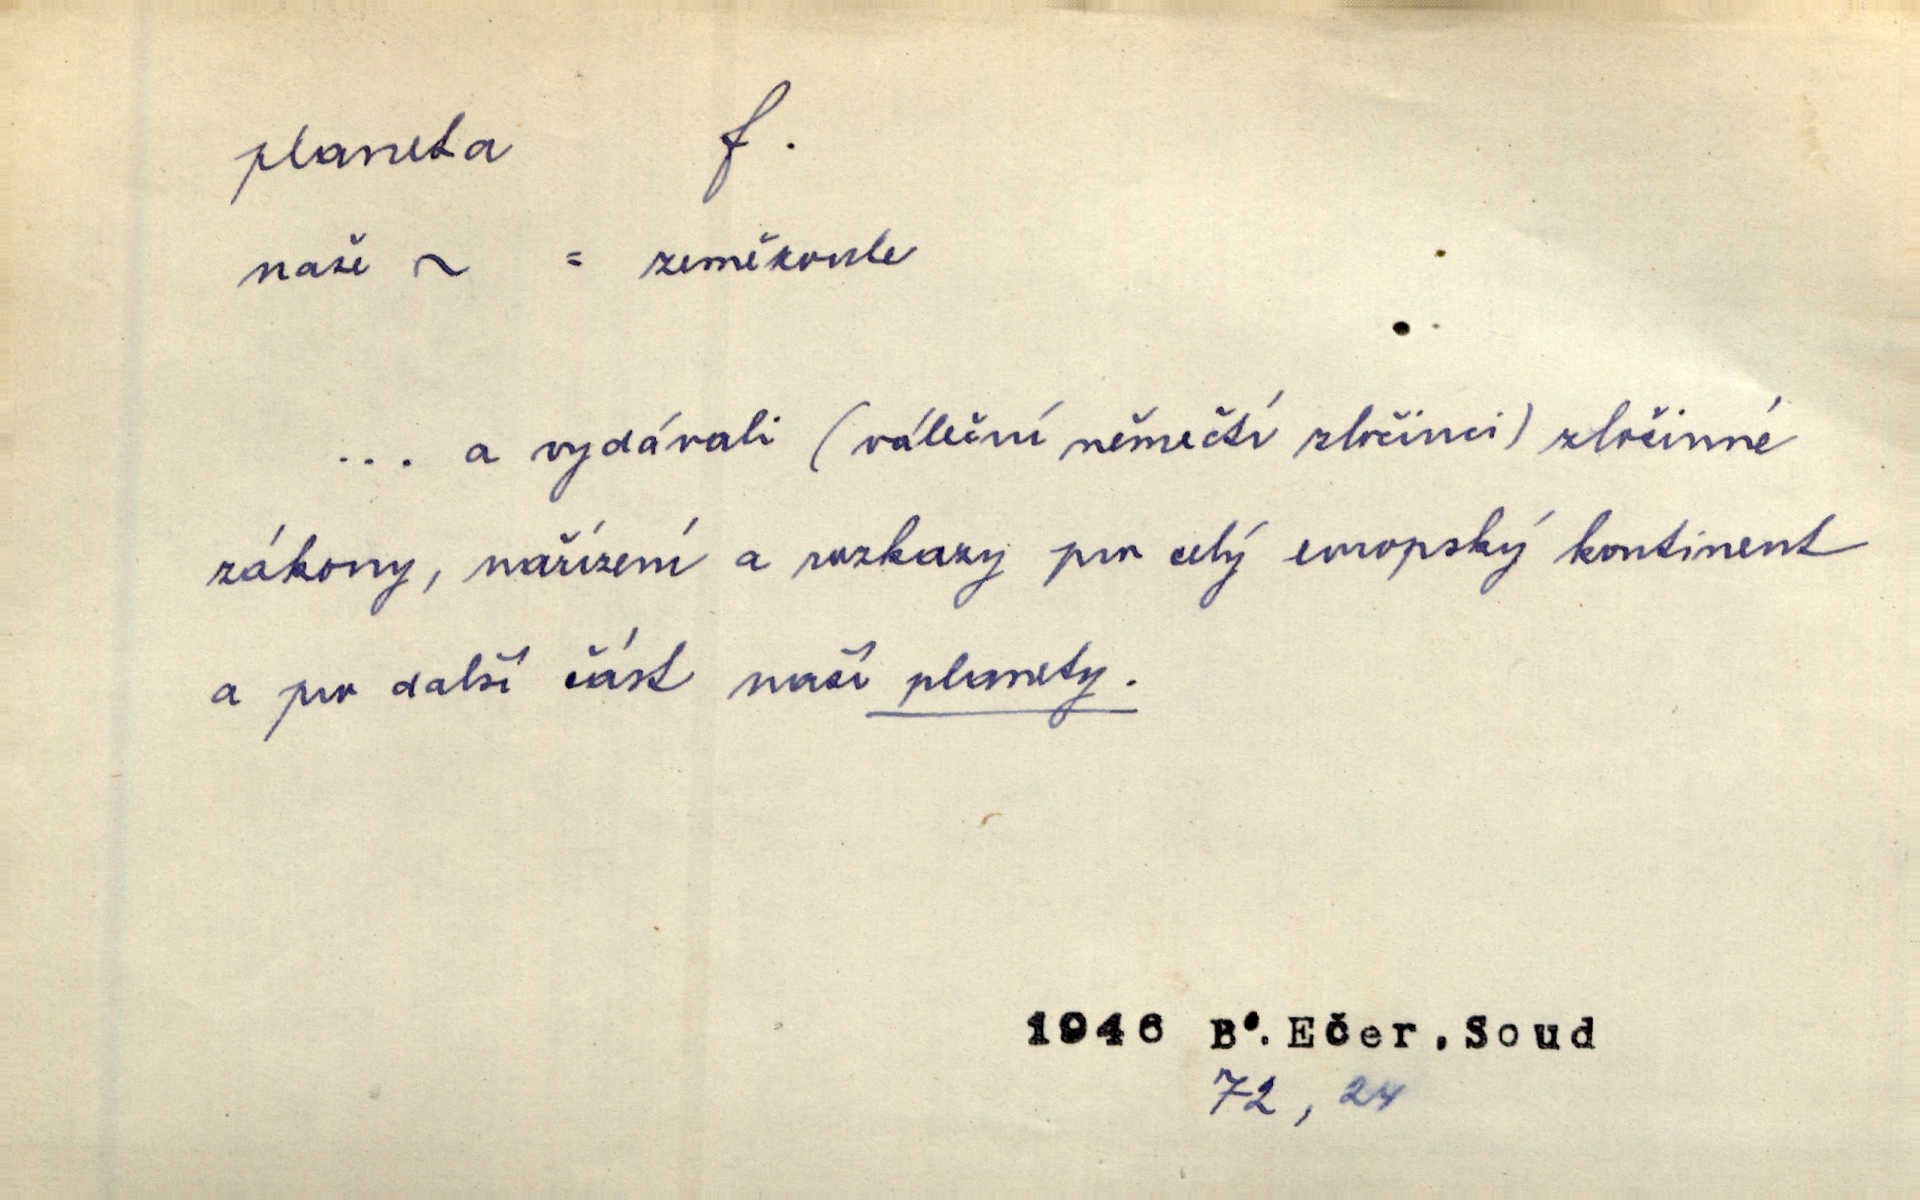 planeta f.
naše ~ = zeměkoule
... a vydávali (váleční němečtí zločinci) zločinné
zákony, nařízení a rozkazy pro celý evropský kontinent
a pro další část naší planety.
1946 B. Ečer, Soud
72, 24